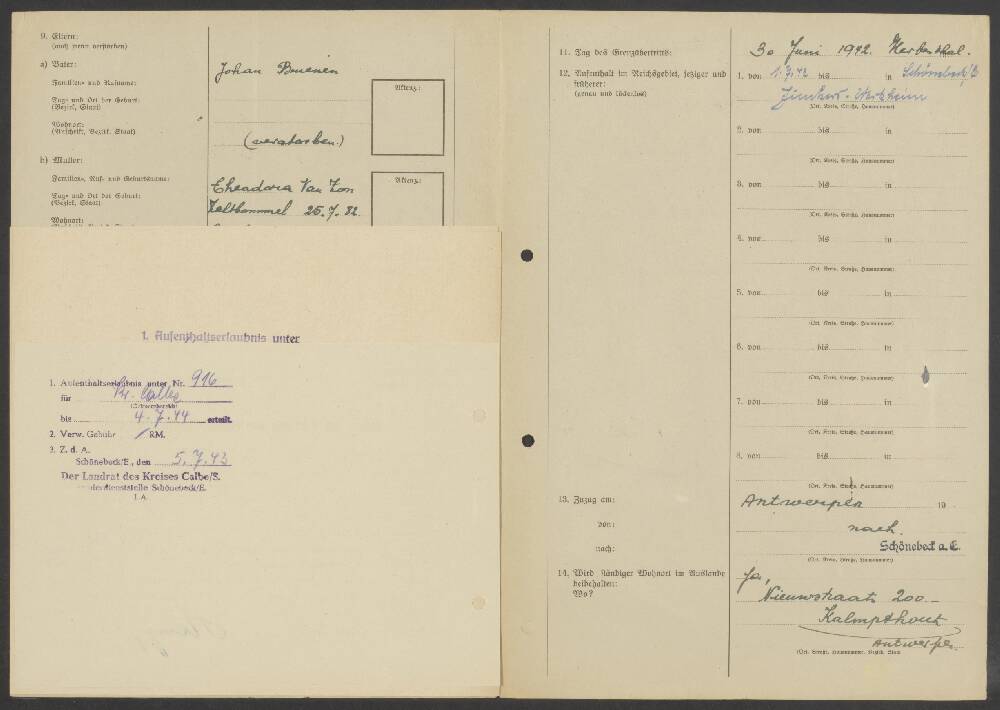 9. Eltern:
(auch wenn verstorben)
a) Vater:
Johan Bruenen
Familien- und Rufname:
Aktenz.:
Tag- und Ort der Geburt:
(Bezirk, Staat)
Wohnort:
(Anschrift, Bezirk, Staat)
(verstorben)
b) Mutter:
Familien-, Ruf- und Geburtsname:
Theadora Van Zon
Aktenz.:
Tag- und Ort der Geburt:
(Bezirk, Staat)
Zaltbommel 25.7.82.
Wohnort:
1. Aufenthaltserlaubnis unter
1. Aufenthaltserlaubnis unter Nr. 916
für Kr. Calbe
bis 4.7.44 erteilt.
2. Verw. Gebühr / RM.
3. Z. d. A.
Schönebeck/E., den 5.7.43
Der Landrat des Kreises Calbe/S.
Nebendienststelle Schönebeck/E.
I. A.
11. Tag des Grenzübertritts:
30 Juni 1942. Herbesthal.
12. Aufenthalt im Reichsgebiet, jetziger und
früherer:
(genau und lückenlos)
1. von 1.7.42 bis in Schönebeck/E
Junkers-Werkheim
(Ort, Kreis, Straße, Hausnummer)
2. von bis in
(Ort, Kreis, Straße, Hausnummer)
3. von bis in
(Ort, Kreis, Straße, Hausnummer)
4. von bis in
(Ort, Kreis, Straße, Hausnummer)
5. von bis in
(Ort, Kreis, Straße, Hausnummer)
6. von bis in
(Ort, Kreis, Straße, Hausnummer)
7. von bis in
(Ort, Kreis, Straße, Hausnummer)
8. von bis in
(Ort, Kreis, Straße, Hausnummer)
13. Zuzug am:
Antwerpen 19
von:
nach.
nach:
Schönebeck a. E.
(Ort, Kreis, Straße, Hausnummer)
14. Wird ständiger Wohnort im Auslande
beibehalten:
Wo?
Ja,
Nieuwstraat 200-
Kalmpthout
Antwerpen.
(Ort, Straße, Hausnummer, Bezirk, Staat)